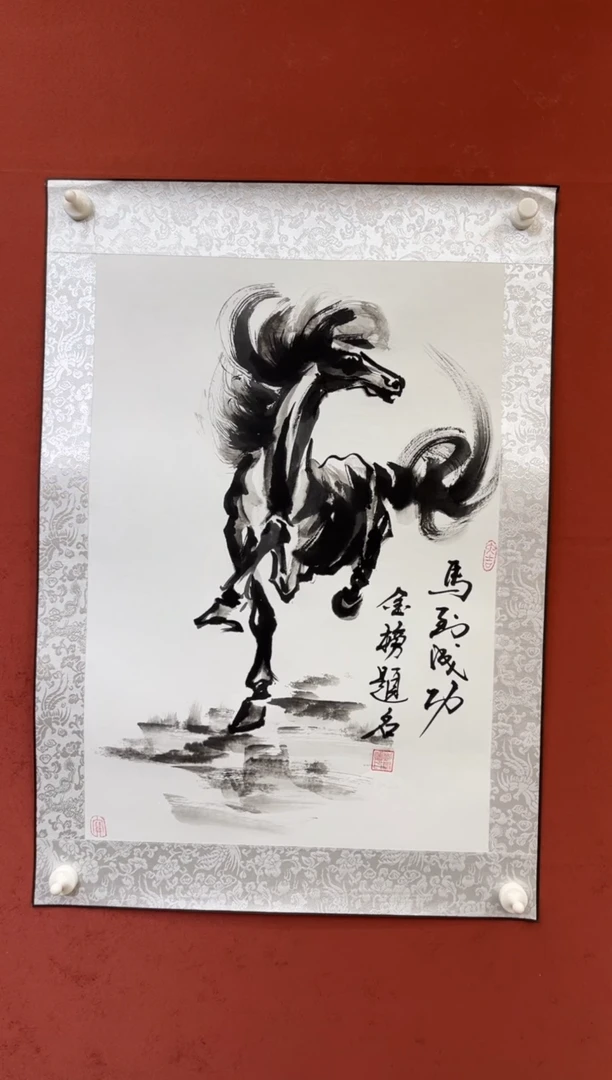 馬到成功
金榜題名